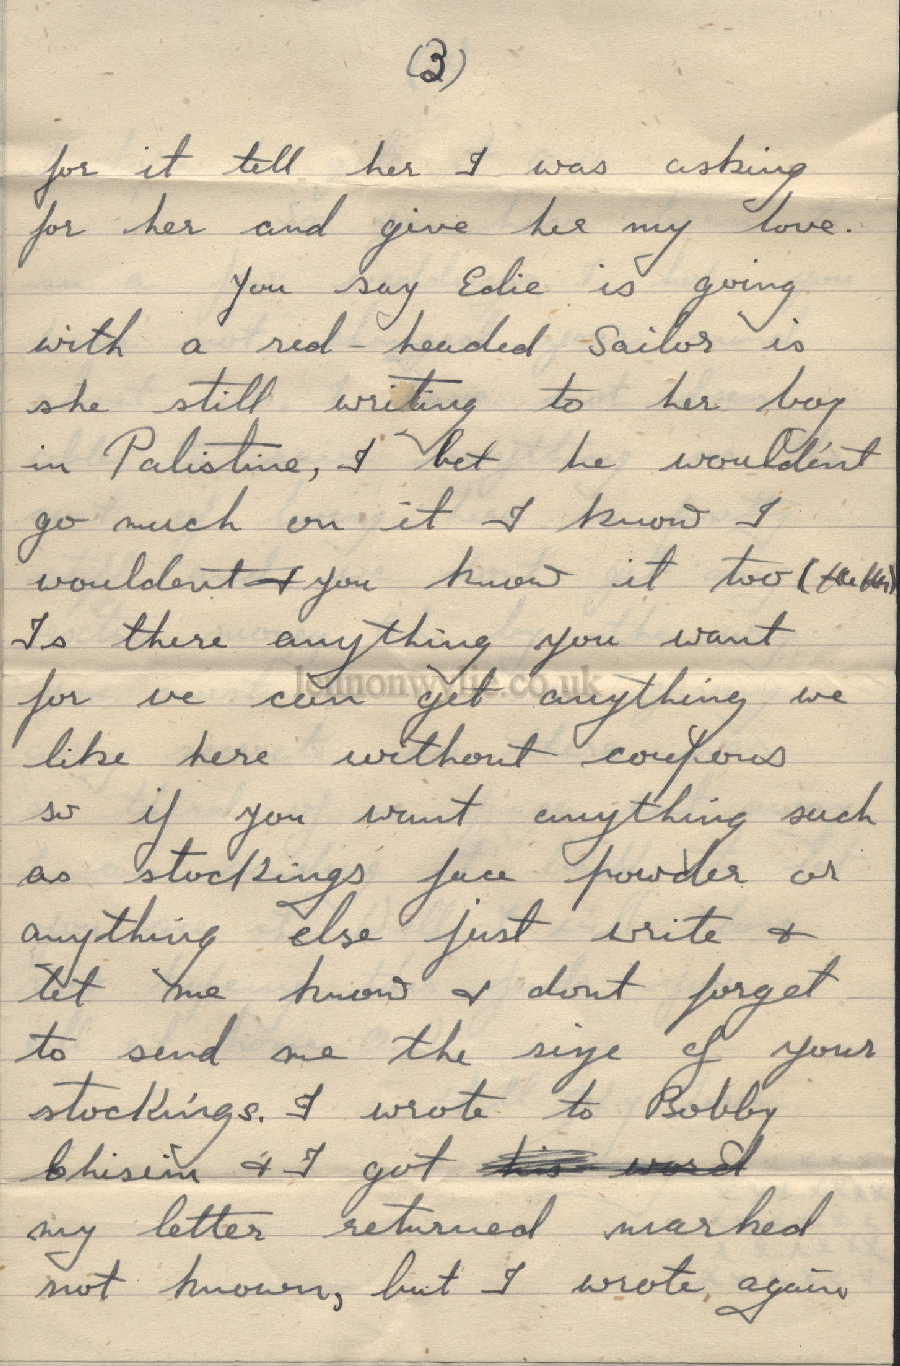 (3)
for it tell her I was asking
for her and give her my love.
You say Edie is going
with a red-headed Sailor is
she still writing to her boy
in Palistine, I bet he wouldent
go much on it I know I
wouldent & you know it too
Is there anything you want
for we can get anything we
lennonwylie.co.uk
like here without coupons
so if you want anything such
as stockings face powder or
anything else just write &
let me know & dont forget
to send me the size of your
stockings. I wrote to Bobby
Chisim & I got his word
my letter returned marked
not known, but I wrote again